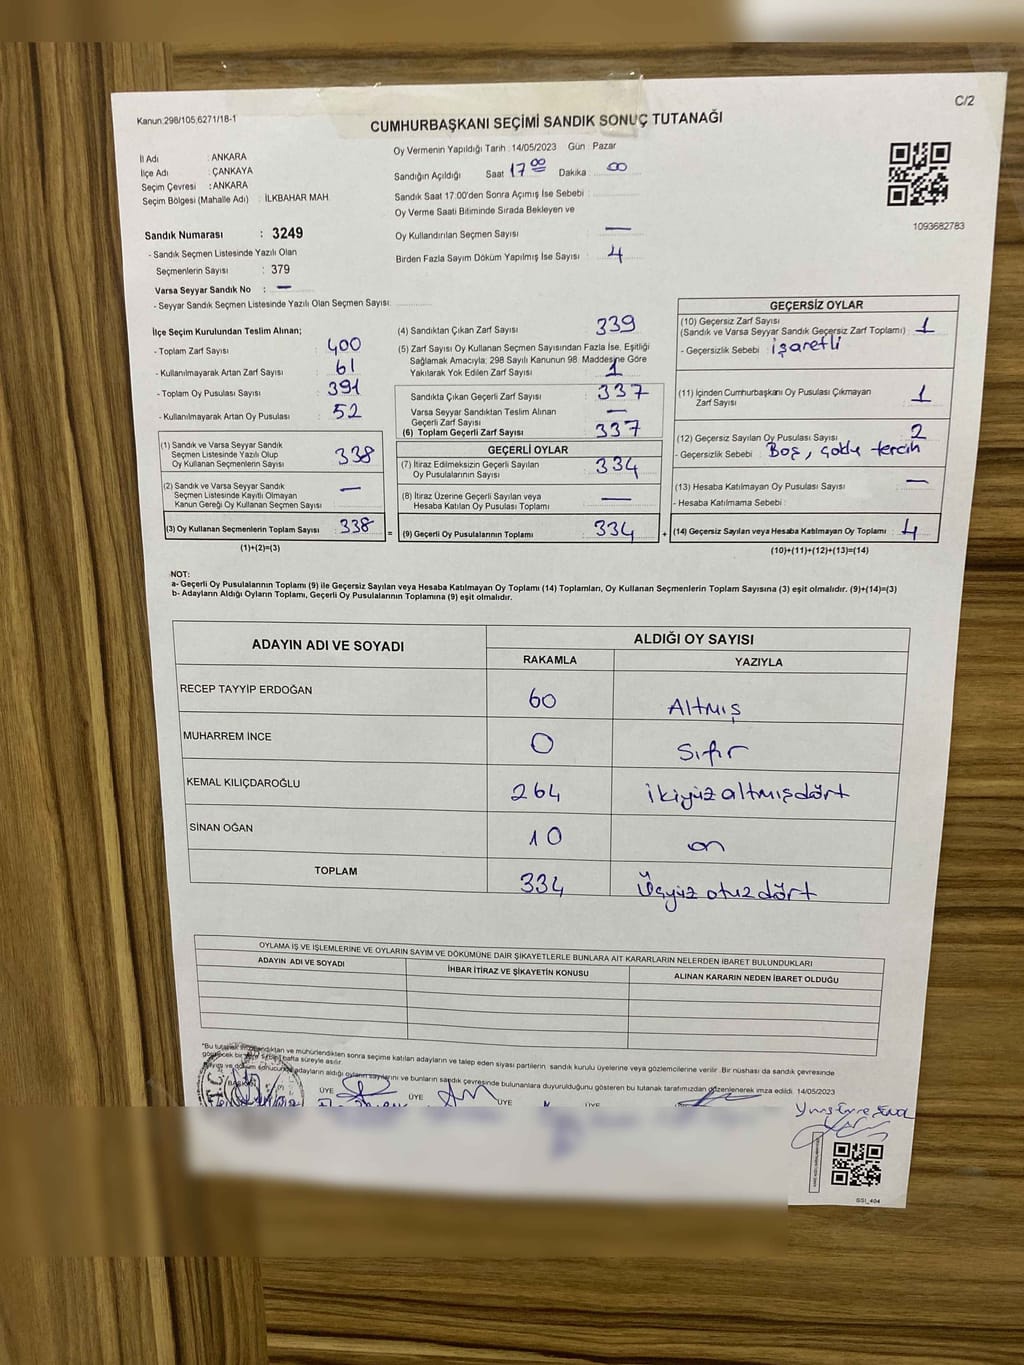 C/2
Kanun:298/105,6271/18-1
CUMHURBAŞKANI SEÇİMİ SANDIK SONUÇ TUTANAĞI
İl Adı : ANKARA
İlçe Adı : ÇANKAYA
Seçim Çevresi : ANKARA
Seçim Bölgesi (Mahalle Adı) : İLKBAHAR MAH
Sandık Numarası : 3249
- Sandık Seçmen Listesinde Yazılı Olan
Seçmenlerin Sayısı : 379
Varsa Seyyar Sandık No : —
- Seyyar Sandık Seçmen Listesinde Yazılı Olan Seçmen Sayısı:
Oy Vermenin Yapıldığı Tarih :14/05/2023 Gün Pazar
Sandığın Açıldığı Saat 17 00 Dakika 00
Sandık Saat 17:00'den Sonra Açımış İse Sebebi :
Oy Verme Saati Bitiminde Sırada Bekleyen ve
Oy Kullandırılan Seçmen Sayısı : —
Birden Fazla Sayım Döküm Yapılmış İse Sayısı : 4
1093682783
İlçe Seçim Kurulundan Teslim Alınan;
- Toplam Zarf Sayısı : 400
- Kullanılmayarak Artan Zarf Sayısı : 61
- Toplam Oy Pusulası Sayısı : 391
- Kullanılmayarak Artan Oy Pusulası : 52
(1) Sandık ve Varsa Seyyar Sandık
Seçmen Listesinde Yazılı Olup
Oy Kullanan Seçmenlerin Sayısı : 338
(2) Sandık ve Varsa Seyyar Sandık
Seçmen Listesinde Kayıtlı Olmayan
Kanun Gereği Oy Kullanan Seçmen Sayısı : —
(3) Oy Kullanan Seçmenlerin Toplam Sayısı : 338
(1)+(2)=(3)
(4) Sandıktan Çıkan Zarf Sayısı : 339
(5) Zarf Sayısı Oy Kullanan Seçmen Sayısından Fazla İse, Eşitliği
Sağlamak Amacıyla; 298 Sayılı Kanunun 98. Maddesine Göre
Yakılarak Yok Edilen Zarf Sayısı : 1
Sandıkta Çıkan Geçerli Zarf Sayısı : 337
Varsa Seyyar Sandıktan Teslim Alınan
Geçerli Zarf Sayısı : —
(6) Toplam Geçerli Zarf Sayısı : 337
GEÇERLİ OYLAR
(7) İtiraz Edilmeksizin Geçerli Sayılan
Oy Pusulalarının Sayısı : 334
(8) İtiraz Üzerine Geçerli Sayılan veya
Hesaba Katılan Oy Pusulası Toplamı : —
= (9) Geçerli Oy Pusulalarının Toplamı : 334 +
GEÇERSİZ OYLAR
(10) Geçersiz Zarf Sayısı
(Sandık ve Varsa Seyyar Sandık Geçersiz Zarf Toplamı) : 1
- Geçersizlik Sebebi : işaretli
(11) İçinden Cumhurbaşkanı Oy Pusulası Çıkmayan
Zarf Sayısı : 1
(12) Geçersiz Sayılan Oy Pusulası Sayısı : 2
- Geçersizlik Sebebi : Boş, çoklu tercih
(13) Hesaba Katılmayan Oy Pusulası Sayısı : —
- Hesaba Katılmama Sebebi :
(14) Geçersiz Sayılan veya Hesaba Katılmayan Oy Toplamı : 4
(10)+(11)+(12)+(13)=(14)
NOT:
a- Geçerli Oy Pusulalarının Toplamı (9) ile Geçersiz Sayılan veya Hesaba Katılmayan Oy Toplamı (14) Toplamları, Oy Kullanan Seçmenlerin Toplam Sayısına (3) eşit olmalıdır. (9)+(14)=(3)
b- Adayların Aldığı Oyların Toplamı, Geçerli Oy Pusulalarının Toplamına (9) eşit olmalıdır.
ADAYIN ADI VE SOYADI ALDIĞI OY SAYISI
RAKAMLA YAZIYLA
RECEP TAYYİP ERDOĞAN 60 Altmış
MUHARREM İNCE 0 Sıfır
KEMAL KILIÇDAROĞLU 264 ikiyüzaltmışdört
SİNAN OĞAN 10 on
TOPLAM 334 Üçyüz otuzdört
OYLAMA İŞ VE İŞLEMLERİNE VE OYLARIN SAYIM VE DÖKÜMÜNE DAİR ŞİKAYETLERLE BUNLARA AİT KARARLARIN NELERDEN İBARET BULUNDUKLARI
ADAYIN ADI VE SOYADI İHBAR İTİRAZ VE ŞİKAYETİN KONUSU ALINAN KARARIN NEDEN İBARET OLDUĞU
"Bu tutanak ve mühürlendikten sonra seçime katılan adayların ve talep eden siyasi partilerin sandık kurulu üyelerine veya gözlemcilerine verilir. Bir nüshası da sandık çevresinde
bir yere bir hafta süreyle asılır.
ve döküm sonucunda adayların aldığı oyların sayılarını ve bunların sandık çevresinde bulunanlara duyurulduğunu gösteren bu tutanak tarafımızdan düzenlenerek imza edildi. 14/05/2023
T.C.
BAŞKAN ÜYE ÜYE ÜYE ÜYE
SSİ_404